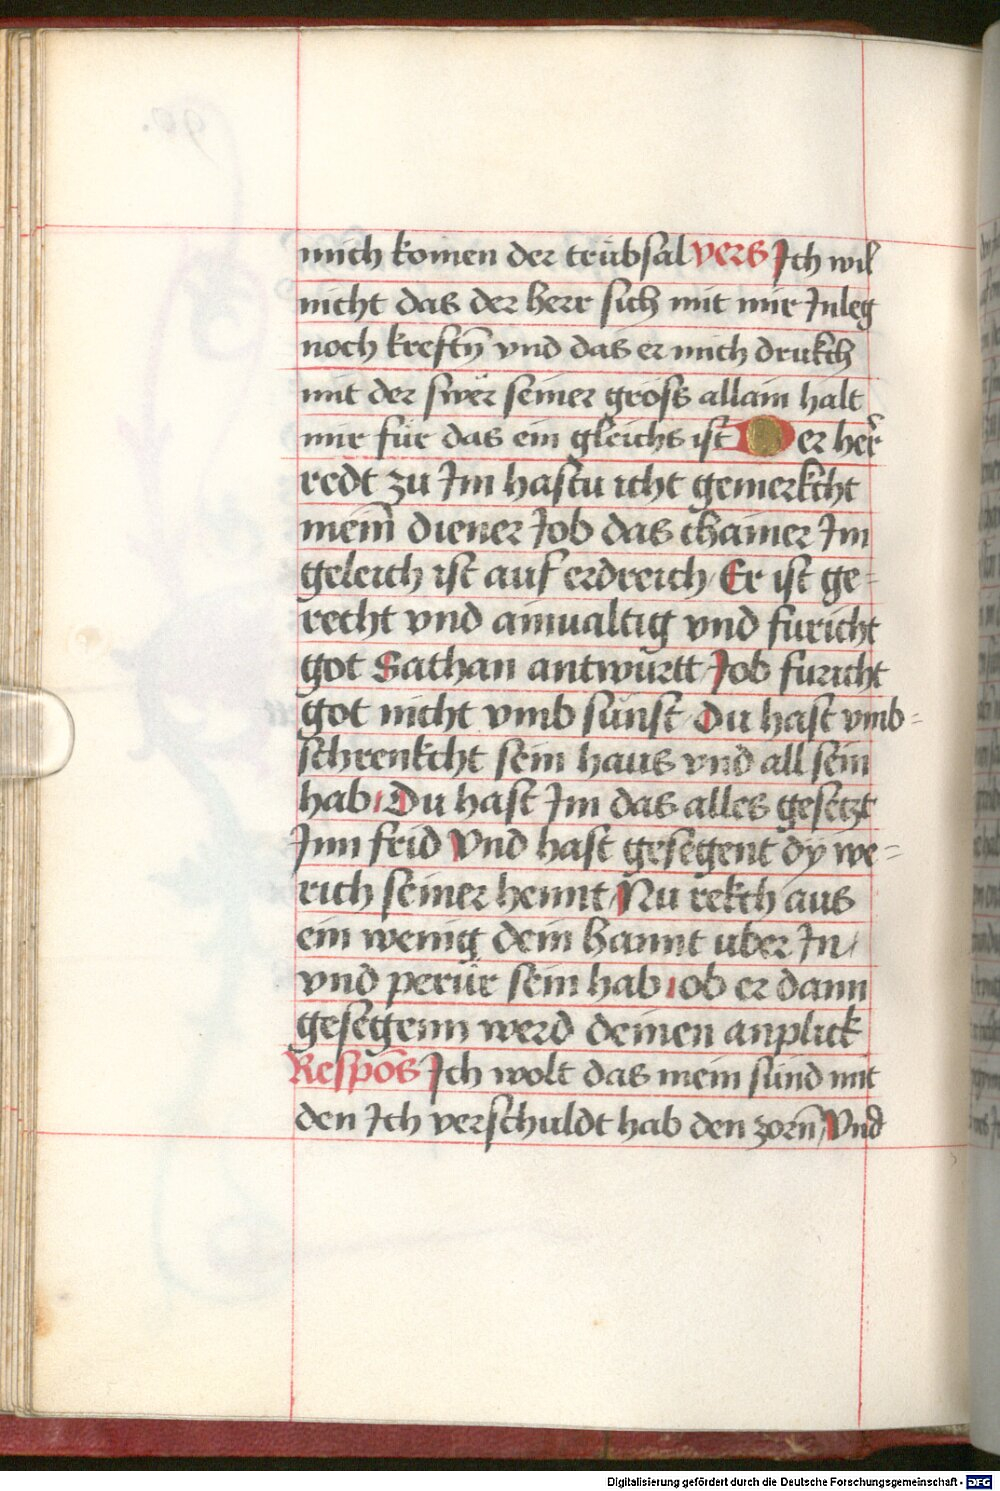 mich komen der trübsal vers Ich wil
nicht das der herr sich mit mir Inleg
noch kreftn̄ vnd das er mich drukch
mit der swër seiner gröss allain halt
mir für das ein gleichs ist Der her̃
redt zu Im hastu icht gemerkcht
mein̄ diener Job das chainer Im
geleich ist auf erdreich Er ist ge=
recht vnd ainualtig vnd furicht
got Sathan antwürtt Job furicht
got nicht vmb sünst Du hast vmb=
schrenkcht sein haus vnd all sein
hab Du hast Im das alles gesetzt
Inn frid Vnd hast gesegent dÿ we=
rich seiner hennt Nu rekch aus
ein wenig dein hannt uber In
vnd perür sein hab ob er dann
gesegenn werd deinen anplick
Respōs Ich wolt das mein sünd mit
den Ich verschuldt hab den zorn̄ Vnd
Digitalisierung gefördert durch die Deutsche Forschungsgemeinschaft - DFG